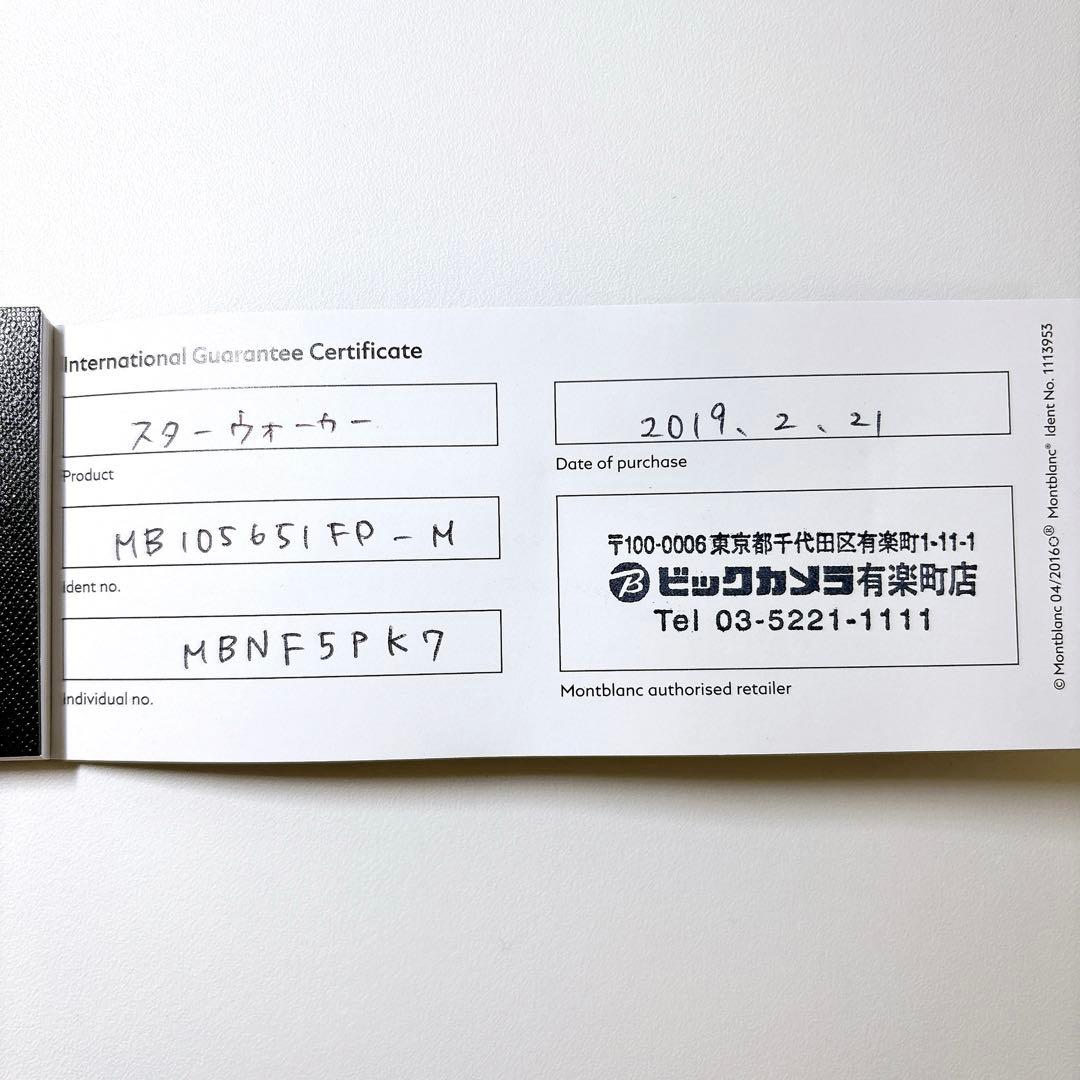 International Guarantee Certificate
スターウォーカー
Product
MB105651FP-M
Ident no.
MBNF5PK7
Individual no.
2019、2、21
Date of purchase
〒100-0006 東京都千代田区有楽町1-11-1
ビックカメラ有楽町店
Tel 03-5221-1111
Montblanc authorised retailer
© Montblanc 04/2016 Montblanc® Ident No. 1113953